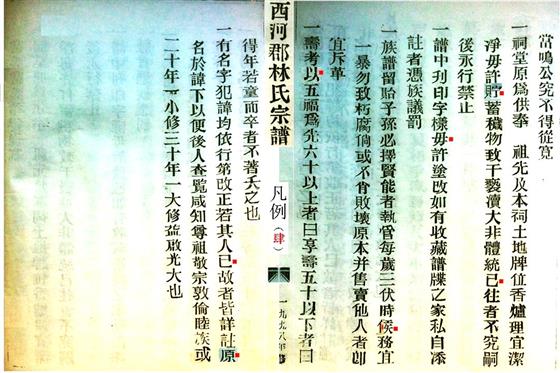 當鳴公究不得從寬
一祠堂原爲供奉 祖先及本祠土地牌位香爐理宜潔
淨毋許貯蓄穢物致干褻瀆大非體統已往者不究嗣
後永行禁止
一譜中刋印字樣毋許塗改如有收藏譜牒之家私自添
註者憑族議罰
一族譜留貽子孫必擇賢能者執管每歲三伏時候務宜
一暴勿致朽腐倘或不肖敗壞原本并售賣他人者卽
宜斥革
一壽考以五福爲先六十以上者曰享壽五十以下者曰
西河郡林氏宗譜 凡例(肆) 一九九八年修
得年若童而卒者不著夭之也
一有名字犯諱均依行第改正若其人已故者皆詳註原
名於諱下以便後人查覽咸知尊祖敬宗敦倫睦族或
二十年一小修三十年一大修益啟光大也